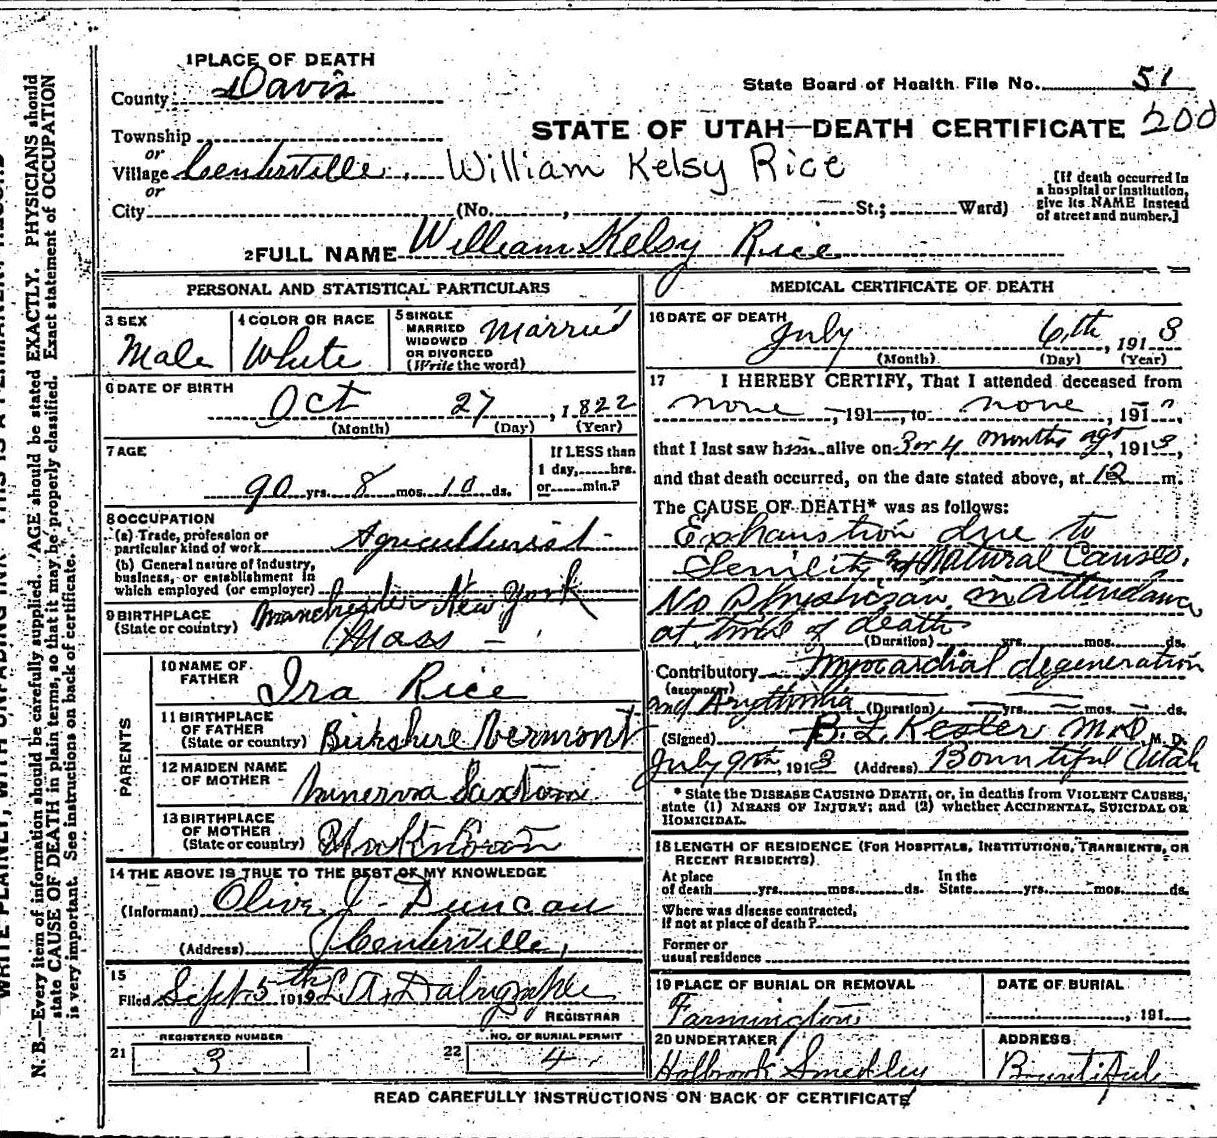 1 PLACE OF DEATH
County Davis
State Board of Health File No. 51
200
Township
or
STATE OF UTAH—DEATH CERTIFICATE
Village Centerville William Kelsy Rice
or
City (No. , St.; Ward)
[If death occurred in
a hospital or institution,
give its NAME instead
of street and number.]
2 FULL NAME William Kelsy Rice
PERSONAL AND STATISTICAL PARTICULARS
3 SEX
Male
4 COLOR OR RACE
White
5 SINGLE
MARRIED
WIDOWED
OR DIVORCED
(Write the word)
Married
6 DATE OF BIRTH
Oct 27, 1822
(Month) (Day) (Year)
7 AGE
90 yrs. 8 mos. 10 ds.
If LESS than
1 day, hrs.
or min.?
8 OCCUPATION
(a) Trade, profession or
particular kind of work Agriculturist
(b) General nature of industry,
business, or establishment in
which employed (or employer)
9 BIRTHPLACE
(State or country)
Manchester New York
Mass
PARENTS
10 NAME OF
FATHER
Ira Rice
11 BIRTHPLACE
OF FATHER
(State or country)
Birkshire Vermont
12 MAIDEN NAME
OF MOTHER
Minerva Saxton
13 BIRTHPLACE
OF MOTHER
(State or country)
14 THE ABOVE IS TRUE TO THE BEST OF MY KNOWLEDGE
(Informant) Olive J. Duncan
(Address) Centerville,
15
Filed Sept 5th 191 L. A. Dalrymple
REGISTRAR
21 REGISTERED NUMBER
3
22 NO. OF BURIAL PERMIT
4
MEDICAL CERTIFICATE OF DEATH
16 DATE OF DEATH
July 6th, 1913
(Month) (Day) (Year)
17 I HEREBY CERTIFY, That I attended deceased from
none 191 , to none , 191
that I last saw him alive on 3 or 4 months ago, 1913,
and that death occurred, on the date stated above, at 12 m.
The CAUSE OF DEATH* was as follows:
Exhaustion due to
Senility and Natural Causes.
No Physician in attendance
at time of death
(Duration) yrs. mos. ds.
Contributory Myocardial degeneration
(SECONDARY)
and Arythmia (Duration) yrs. mos. ds.
(Signed) B. L. Kesler M.D., M. D.
July 9th, 1913 (Address) Bountiful Utah
* State the DISEASE CAUSING DEATH, or, in deaths from VIOLENT CAUSES,
state (1) MEANS OF INJURY; and (2) whether ACCIDENTAL, SUICIDAL OR
HOMICIDAL.
18 LENGTH OF RESIDENCE (FOR HOSPITALS, INSTITUTIONS, TRANSIENTS, OR
RECENT RESIDENTS)
At place
of death yrs. mos. ds.
In the
State yrs. mos. ds.
Where was disease contracted,
If not at place of death?
Former or
usual residence
19 PLACE OF BURIAL OR REMOVAL
Farmington
DATE OF BURIAL
, 191
20 UNDERTAKER
Holbrook Smedley
ADDRESS
Bountiful
READ CAREFULLY INSTRUCTIONS ON BACK OF CERTIFICATE
N. B.—Every item of information should be carefully supplied. AGE should be stated EXACTLY. PHYSICIANS should
state CAUSE OF DEATH in plain terms, so that it may be properly classified. Exact statement of OCCUPATION
is very important. See instructions on back of certificate.